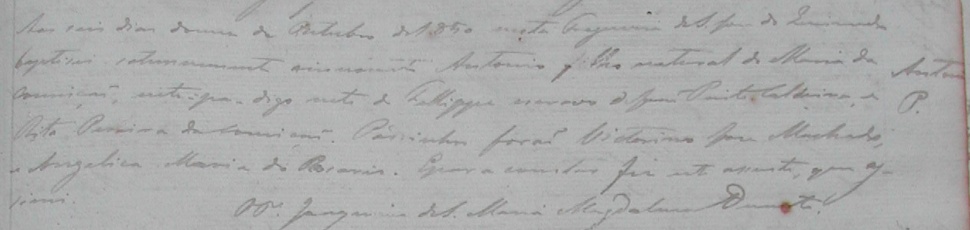 Aos seis dias do mes de Outubro de 1850 nesta Freguesia de S. José do Queimado
baptisei solemnemente ao innocente Antonio filho natural de Maria da
Conceição, neto, digo neto de Fellippe escravo de José Pinto Caldeira, e
Rita Pereira da Conceiçaõ. Padrinhos foraõ Victorino Jose Machado,
e Angelica Maria do Rosario. E para constar fiz este assento, que as-
signei.
Fr. Joaquim de S. Maria Magdalena Duarte.
Antonio
P.